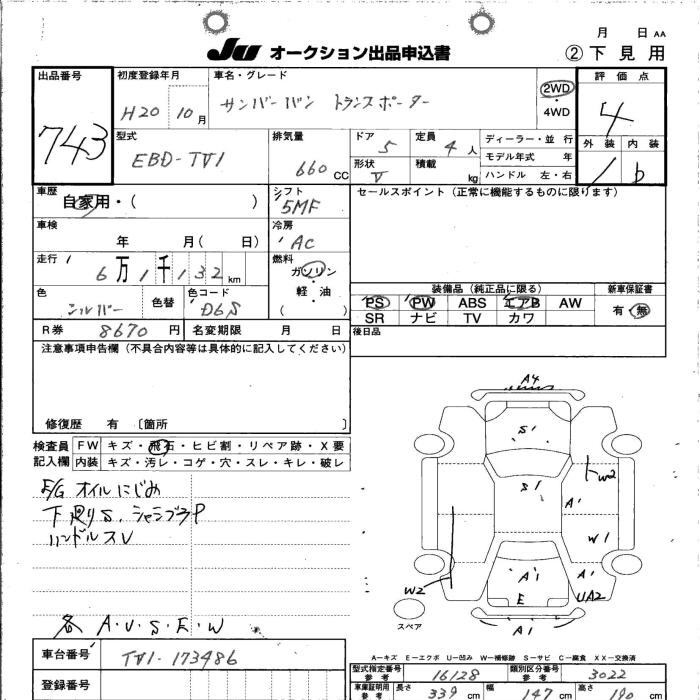 月 日 AA
JU オークション出品申込書 ②下見用
出品番号 743
初度登録年月 H20 10月
車名・グレード サンバーバン トランスポーター
2WD・4WD
評価点 4
外装 内装
1 b
型式 EBD-TV1
排気量 660 CC
ドア 5 定員 4人
形状 V 積載 kg
ディーラー・並行
モデル年式 年
ハンドル 左・右
車歴 自家用・( )
シフト 5MF
セールスポイント(正常に機能するものに限ります)
車検 年 月( 日)
冷房 AC
走行 6万1千132km
燃料 ガソリン・軽油( )
色 シルバー 色替 色コード D6S
装備品(純正品に限る) 新車保証書
PS PW ABS エアB AW 有・無
SR ナビ TV カワ
R券 8670円 名変期限 月 日
後日品
注意事項申告欄(不具合内容等は具体的に記入してください)
修復歴 有〔箇所 〕
検査員記入欄
FW キズ・飛石・ヒビ割・リペア跡・X要
内装 キズ・汚レ・コゲ・穴・スレ・キレ・破レ
E/G オイルにじみ
下廻りS、シャシブラP
ハンドルスレ
各 A・U・S・E・W
A4
S1
S1
W2
A1
W1
A1
A1
E
UA2
W2
A1
スペア
A-キズ E-エクボ U-凹み W-補修跡 S-サビ C-腐食 XX-交換済
車台番号 TV1-173486
登録番号
型式指定番号 参考 16128 類別区分番号 参考 3022
車庫証明用 参考 長さ 339cm 幅 147cm 高さ 190cm